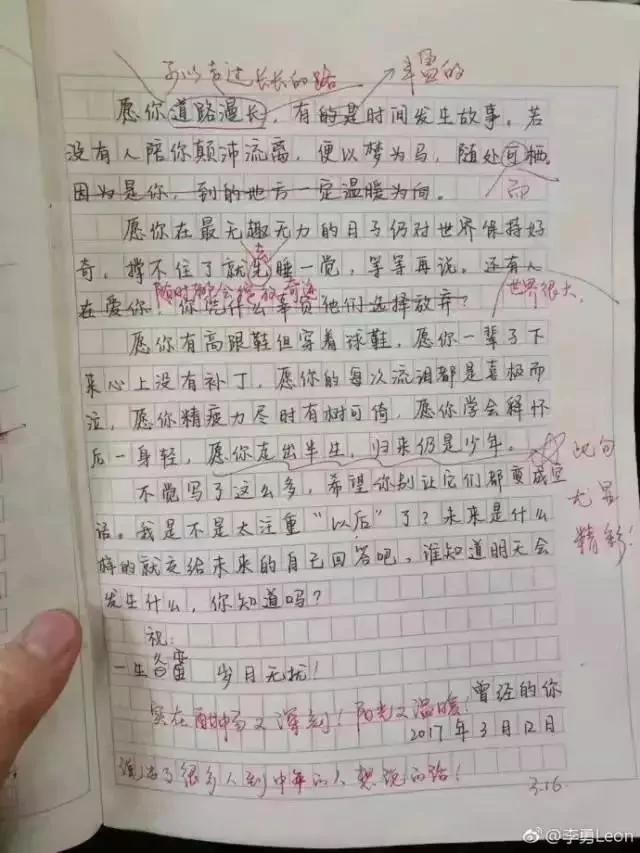 可以走过长长的路 丰富的
愿你道路漫长，有的是时间发生故事。若
没有人陪你颠沛流离，便以梦为马，随处可栖。
因为是你，到的地方一定温暖为向。
而
愿你在最无趣无力的日子仍对世界保持好
奇，撑不住了就先睡一觉，等等再说。还有人
随时都会绽放奇迹
世界很大，
在爱你！你凭什么辜负他们选择放弃？
愿你有高跟鞋但穿着球鞋，愿你一辈子下
来心上没有补丁，愿你的每次流泪都是喜极而
泣，愿你精疲力尽时有树可倚，愿你学会释怀
后一身轻，愿你走出半生，归来仍是少年。
此句
尤显
精彩！
不觉写了这么多，希望你别让它们都变成空
话。我是不是太注重“以后”了？未来是什么
样的就交给未来的自己回答吧，谁知道明天会
发生什么，你知道吗？
祝：
一生 岁月无扰！
曾经的你
实在酣畅又深刻！阳光又温暖！
2017年3月12日
说出了很多人到中年的人想说的话！
3.16
@李勇Leon